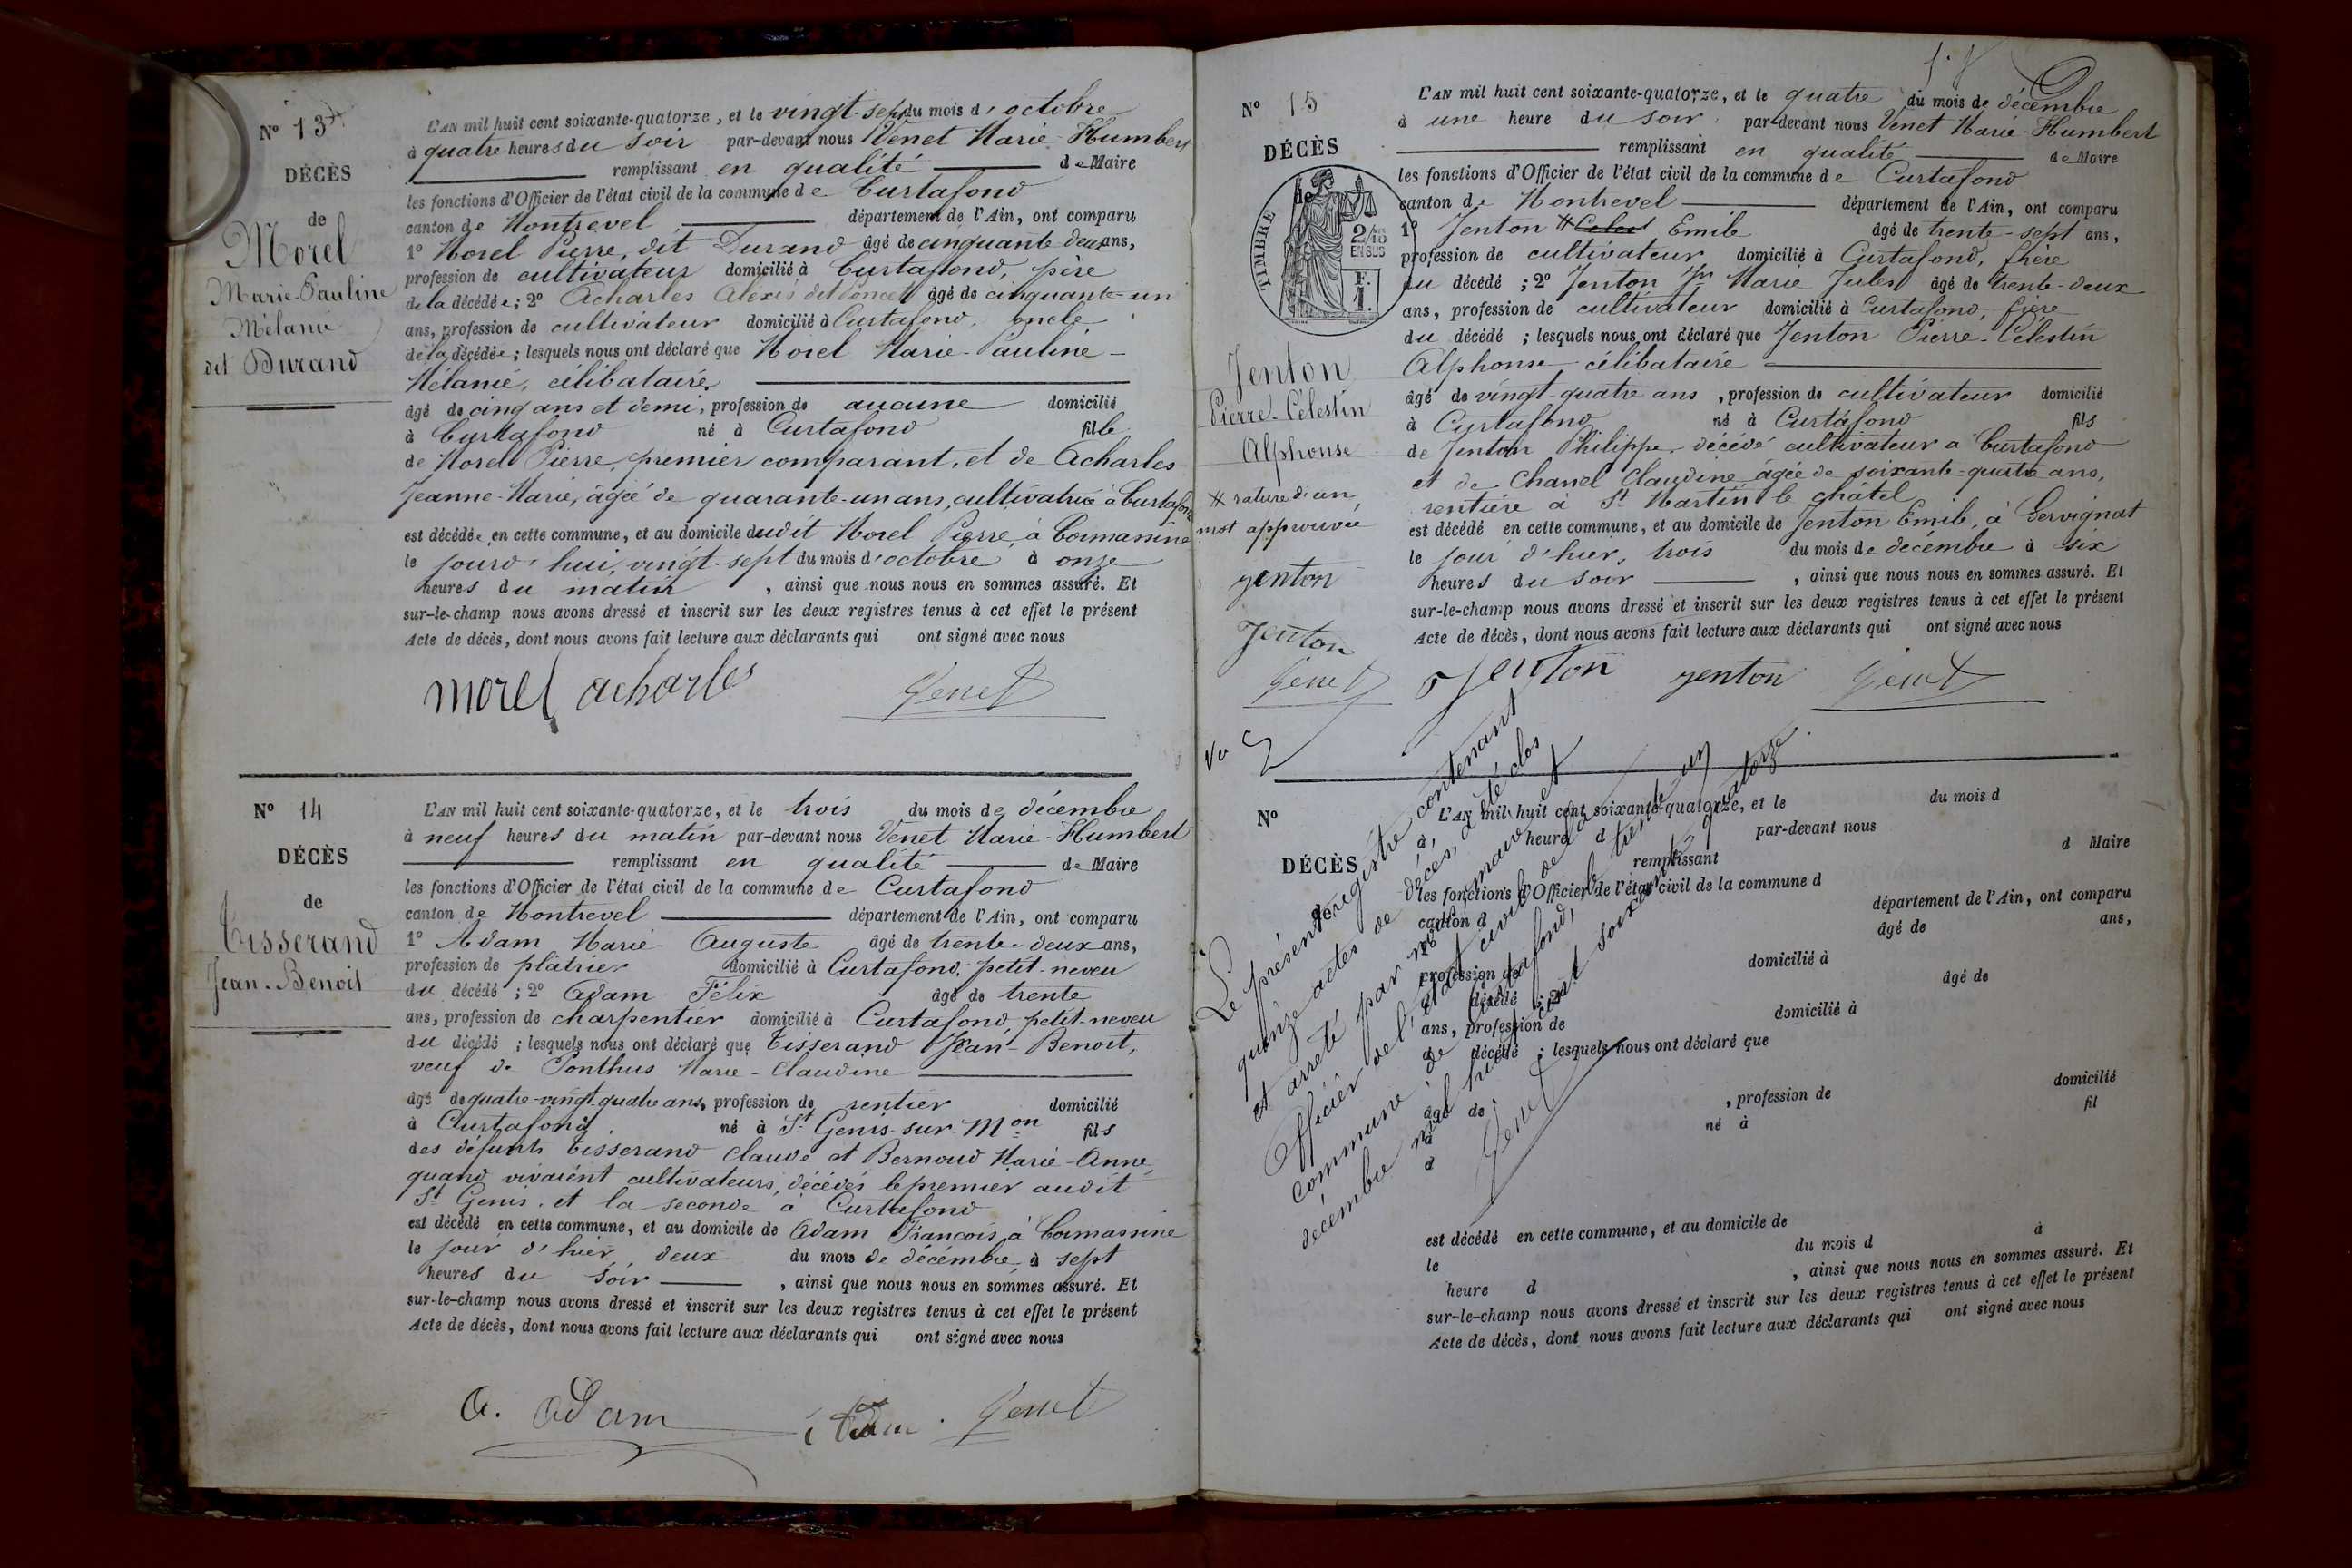 N° 13
DÉCÈS
de
Morel
Marie-Pauline
Mélanie
dit Durand
L'AN mil huit cent soixante-quatorze, et le vingt-sept du mois d'octobre
à quatre heures du soir par-devant nous Venet Marie-Humbert
remplissant en qualité de Maire
les fonctions d'Officier de l'état civil de la commune de Curtafond
canton de Montrevel département de l'Ain, ont comparu
1° Morel Pierre, dit Durand âgé de cinquante-deux ans,
profession de cultivateur domicilié à Curtafond, père
de la décédée ; 2° Acharles Alexis dit Poncet âgé de cinquante-un
ans, profession de cultivateur domicilié à Curtafond, oncle
de la décédée ; lesquels nous ont déclaré que Morel Marie-Pauline-
Mélanie, célibataire,
âgé de cinq ans et demi, profession de aucune domicilié
à Curtafond né à Curtafond fille
de Morel Pierre, premier comparant, et de Acharles
Jeanne-Marie, âgée de quarante-un ans, cultivatrice à Curtafond
est décédée en cette commune, et au domicile dudit Morel Pierre, à Cormassine
le jourd'hui, vingt-sept du mois d'octobre à onze
heures du matin , ainsi que nous nous en sommes assuré. Et
sur-le-champ nous avons dressé et inscrit sur les deux registres tenus à cet effet le présent
Acte de décès, dont nous avons fait lecture aux déclarants qui ont signé avec nous
morel acharles Venet
N° 14
DÉCÈS
de
Tisserand
Jean-Benoit
L'AN mil huit cent soixante-quatorze, et le trois du mois de décembre
à neuf heures du matin par-devant nous Venet Marie-Humbert
remplissant en qualité de Maire
les fonctions d'Officier de l'état civil de la commune de Curtafond
canton de Montrevel département de l'Ain, ont comparu
1° Adam Marie-Auguste âgé de trente-deux ans,
profession de plâtrier domicilié à Curtafond, petit-neveu
du décédé ; 2° Adam Félix âgé de trente
ans, profession de charpentier domicilié à Curtafond, petit-neveu
du décédé ; lesquels nous ont déclaré que Tisserand Jean-Benoit,
veuf de Ponthus Marie-Claudine
âgé de quatre-vingt-quatre ans, profession de rentier domicilié
à Curtafond né à St Genis-sur-Mon fils
des défunts Tisserand Claude et Bernoud Marie-Anne,
quand vivaient cultivateurs, décédés le premier audit
St Genis, et la seconde à Curtafond
est décédé en cette commune, et au domicile de Adam François à Cormassine
le jour d'hier, deux du mois de décembre à sept
heures du soir , ainsi que nous nous en sommes assuré. Et
sur-le-champ nous avons dressé et inscrit sur les deux registres tenus à cet effet le présent
Acte de décès, dont nous avons fait lecture aux déclarants qui ont signé avec nous
A. Adam Adam Venet
N° 15
DÉCÈS
de
TIMBRE
2/10
EN SUS
F. 1.
Jenton
Pierre-Célestin
Alphonse
# rature d'un
mot approuvée
yenton
Jenton
Venet
L'AN mil huit cent soixante-quatorze, et le quatre du mois de décembre
à une heure du soir par-devant nous Venet Marie-Humbert
remplissant en qualité de Maire
les fonctions d'Officier de l'état civil de la commune de Curtafond
canton de Montrevel département de l'Ain, ont comparu
1° Jenton # Emile âgé de trente-sept ans,
profession de cultivateur domicilié à Curtafond, frère
du décédé ; 2° Jenton Marie Jules âgé de trente-deux
ans, profession de cultivateur domicilié à Curtafond, frère
du décédé ; lesquels nous ont déclaré que Jenton Pierre-Célestin
Alphonse célibataire
âgé de vingt-quatre ans , profession de cultivateur domicilié
à Curtafond né à Curtafond fils
de Jenton Philippe, décédé cultivateur à Curtafond
et de Chanel Claudine âgée de soixante-quatre ans,
rentière à St Martin le châtel
est décédé en cette commune, et au domicile de Jenton Emile, à Gervignat
le jour d'hier, trois du mois de décembre à six
heures du soir , ainsi que nous nous en sommes assuré. Et
sur-le-champ nous avons dressé et inscrit sur les deux registres tenus à cet effet le présent
Acte de décès, dont nous avons fait lecture aux déclarants qui ont signé avec nous
Jenton yenton Venet
N°
DÉCÈS
de
L'AN mil huit cent soixante-quatorze, et le du mois d
à heure d par-devant nous
remplissant d Maire
les fonctions d'Officier de l'état civil de la commune d
canton d département de l'Ain, ont comparu
âgé de ans,
profession de domicilié à
d décédé ; 2° âgé de
ans, profession de domicilié à
d décédé ; lesquels nous ont déclaré que
âgé de , profession de domicilié
à né à fil
d
est décédé en cette commune, et au domicile de
le du mois d à
heure d , ainsi que nous nous en sommes assuré. Et
sur-le-champ nous avons dressé et inscrit sur les deux registres tenus à cet effet le présent
Acte de décès, dont nous avons fait lecture aux déclarants qui ont signé avec nous
Le présent registre contenant
quinze actes de décès, a été clos
et arrêté par nous, maire et
Officier de l'état civil de la
commune de Curtafond, le trente un
décembre mil huit cent soixante quatorze.
Venet